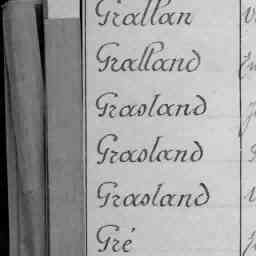 Grallan
Gralland
Grasland
Grasland
Grasland
Gré